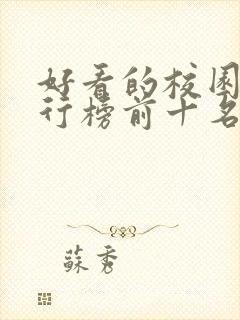 好看的校园
行榜前十名
苏秀